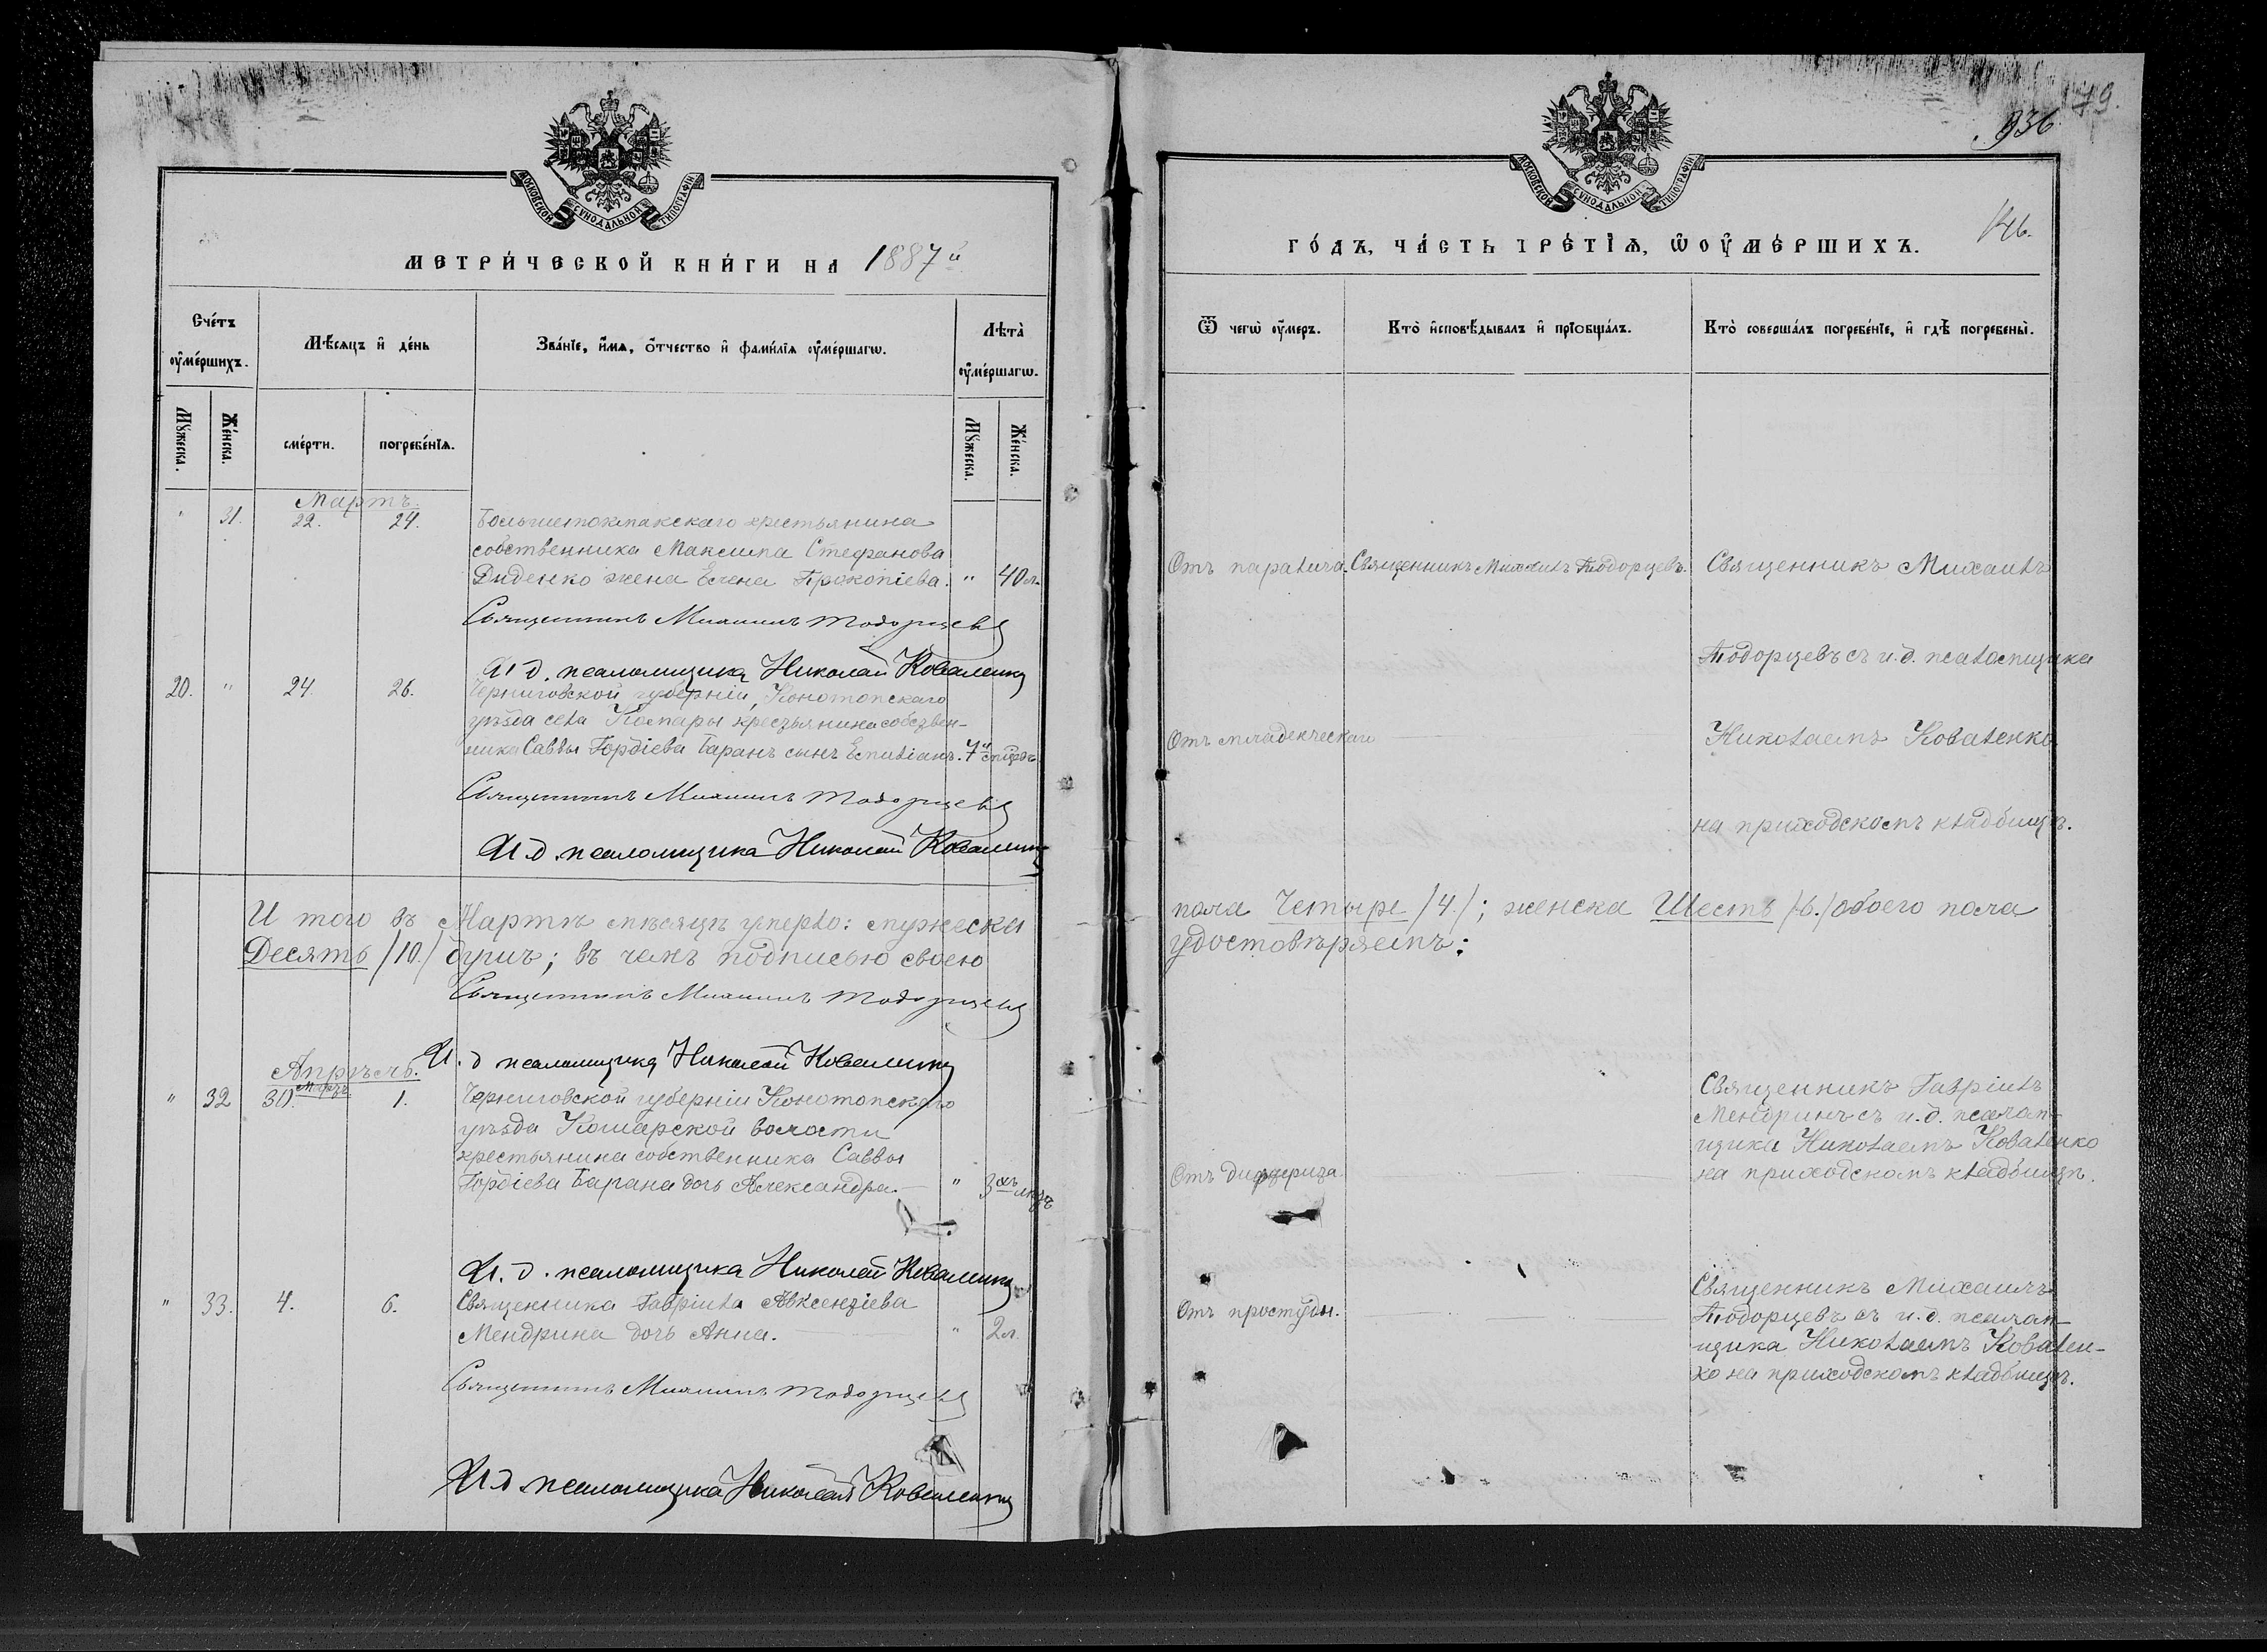 МОСКОВСКОЙ СѴНОДАЛЬНОЙ ТИПОГРАФІИ
МЕТРИ́ЧЕСКОЙ КНИ́ГИ НА 1887й
Сче́тъ оу҆ме́ршихъ.
Мѣ́сяцъ и҆ де́нь
Зва́нїе, и҆́мѧ, ѻ҆́тчество и҆ фами́лїѧ оу҆ме́ршагѡ.
Лѣ́та оу҆ме́ршагѡ.
Мꙋ́жеска.
Же́нска.
сме́рти.
погребе́нїѧ.
Мꙋ́жеска.
Же́нска.
Мартъ.
" 31. 22. 24. Большетокмакскаго крестьянина
собственника Максима Стефанова
Диденко жена Елена Прокопіева. " 40 л.
Священникъ Михаилъ Тодорцевъ
И. д. псаломщика Николай Коваленко
20. " 24. 26. Черниговской губерніи, Конотопскаго
уѣзда села Комары крестьянина собствен-
ника Саввы Гордіева Баранъ сынъ Емиліанъ. 7
Священникъ Михаилъ Тодорцевъ
И. д. псаломщика Николай Коваленко
И того въ Мартѣ мѣсяцѣ умерло: мужеска
Десять /10./ душъ; въ чемъ подписью своею
Священникъ Михаилъ Тодорцевъ
И. д псаломщика Николай Коваленко
Апрѣль.
Мартъ
" 32 30. 1. Черниговской губерніи Конотопскаго
уѣзда Комарской волости
крестьянина собственника Саввы
Гордіева Барана дочь Александра. " 3хъ лѣтъ
И. д. псаломщика Николай Коваленко
" 33. 4. 6. Священника Гавріила Авксентіева
Мендрина дочь Анна. " 2 л.
Священникъ Михаилъ Тодорцевъ
И. д. псаломщика Николай Коваленко
179.
936
146.
МОСКОВСКОЙ СѴНОДАЛЬНОЙ ТИПОГРАФІИ
ГО́ДЪ, ЧА́СТЬ ТРЕ́ТЇѦ, Ѡ҆ ОУ҆МЕ́РШИХЪ.
Ѿ чегѡ̀ оу҆́меръ.
Кто̀ и҆сповѣ́дывалъ и҆ прїобща́лъ.
Кто̀ соверша́лъ погребе́нїе, и҆ гдѣ̀ погребены̀.
Отъ паралича. Священникъ Михаилъ Тодорцевъ. Священникъ Михаилъ
Тодорцевъ съ и. д. псаломщика
Отъ младенческаго Николаемъ Коваленко
на приходскомъ кладбищѣ.
пола Четыре /4/; женска Шесть /6./ обоего пола
удостовѣряемъ:
Священникъ Гавріилъ
Мендринъ съ и. д. псалом-
щика Николаемъ Коваленко
Отъ дифтерита. на приходскомъ кладбищѣ.
Священникъ Михаилъ
Отъ простуды. Тодорцевъ съ и. д. псалом-
щика Николаемъ Ковален-
ко на приходскомъ кладбищѣ.